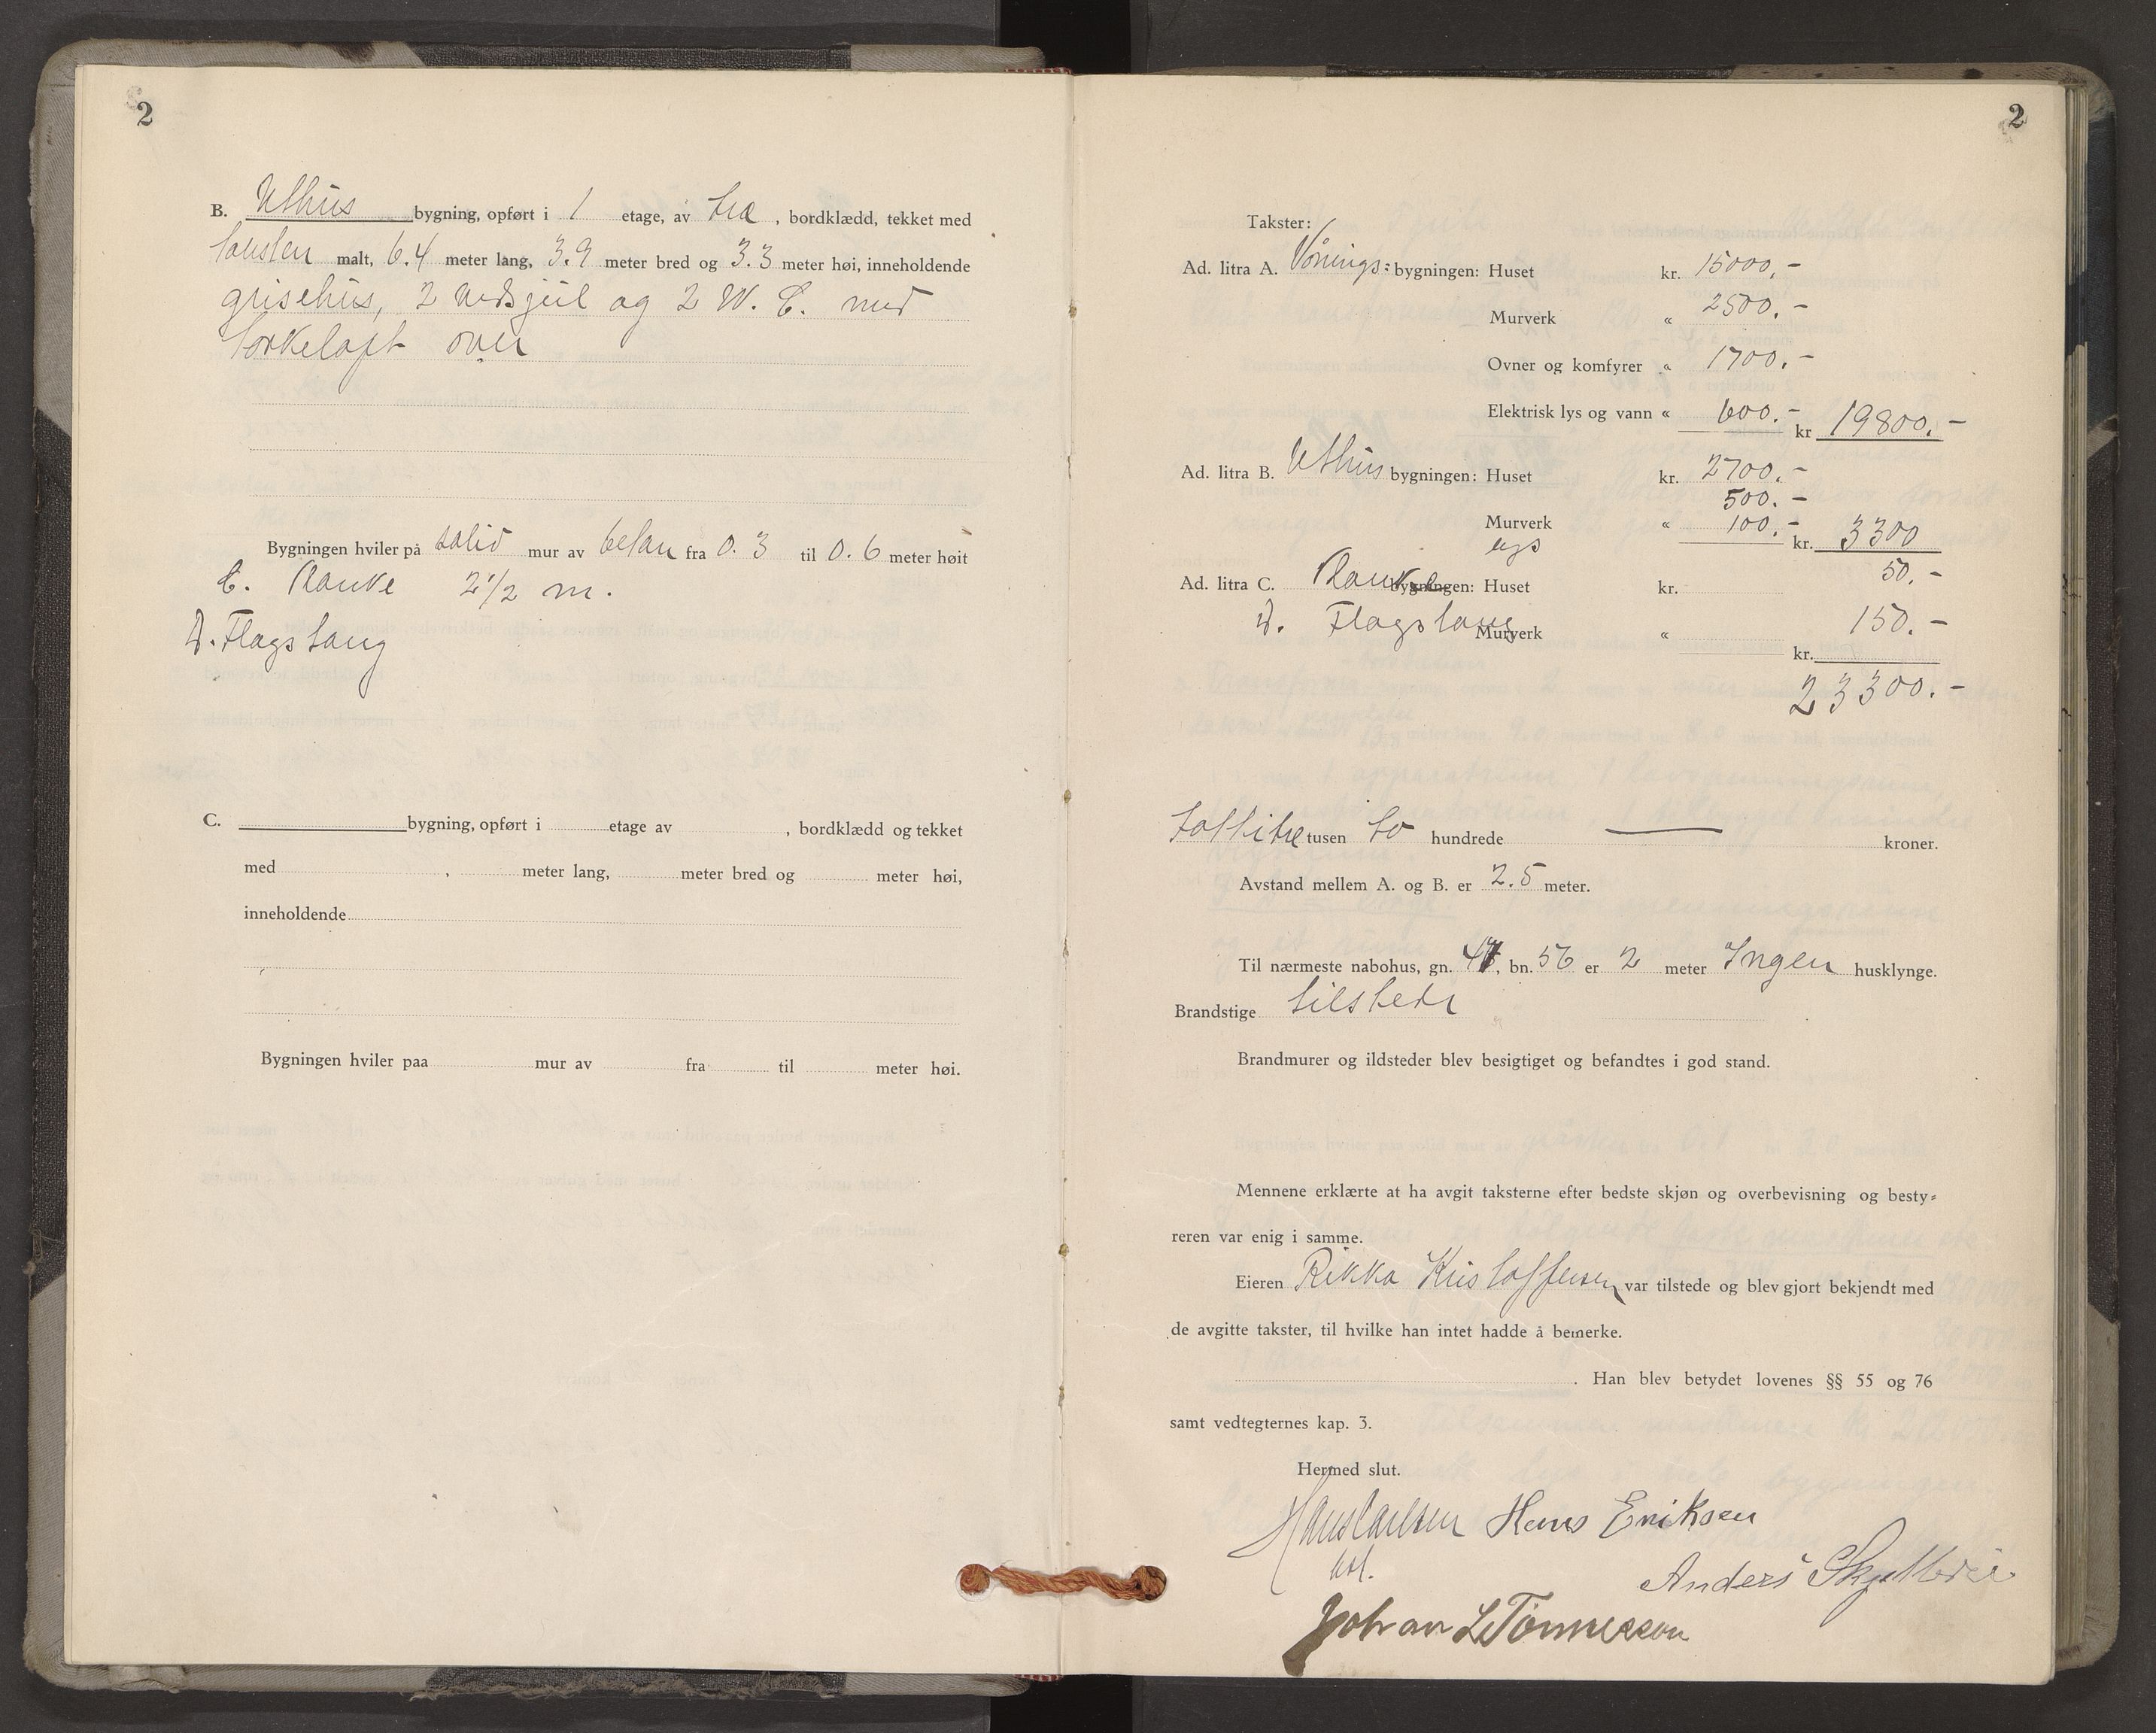 2
B. Uthus bygning, opført i 1 etage, av træ, bordklædd, tekket med
taksten malt, 6.4 meter lang, 3.9 meter bred og 3.3 meter høi, inneholdende
grisehus, 2 vedskjul og 2 W. C. med
torkeloft over
Bygningen hviler på solid mur av beton fra 0.3 til 0.6 meter høit
C. Ranke 2 1/2 m.
D. Flagstang
C. bygning, opført i etage av , bordklædd og tekket
med , meter lang, meter bred og meter høi,
inneholdende
Bygningen hviler paa mur av fra til meter høi.
2
Takster:
Ad. litra A. Vånings-bygningen: Huset kr. 15000.-
Murverk « 2500.-
Ovner og komfyrer « 1700.-
Elektrisk lys og vann « 600.- kr 19800.-
Ad. litra B. Uthus bygningen: Huset kr. 2700.-
500.-
Murverk « 100.- kr. 3300
lys
50.-
Ad. litra C. Ranke bygningen: Huset kr.
D. Flagstang Murverk « 150.-
kr.
23300.-
tusen to hundrede — kroner.
Avstand mellem A. og B. er 2.5 meter.
Til nærmeste nabohus, gn. , bn. 56 er 2 meter Ingen husklynge.
Brandstige tilstede
Brandmurer og ildsteder blev besigtiget og befandtes i god stand.
Mennene erklærte at ha avgit taksterne efter bedste skjøn og overbevisning og besty-
reren var enig i samme.
Eieren Rikka Kristoffersen var tilstede og blev gjort bekjendt med
de avgitte takster, til hvilke han intet hadde å bemerke.
. Han blev betydet lovenes §§ 55 og 76
samt vedtegternes kap. 3.
Hermed slut.
Hans Carlsen Hans Eriksen
Anders
Johan L Tönnessen